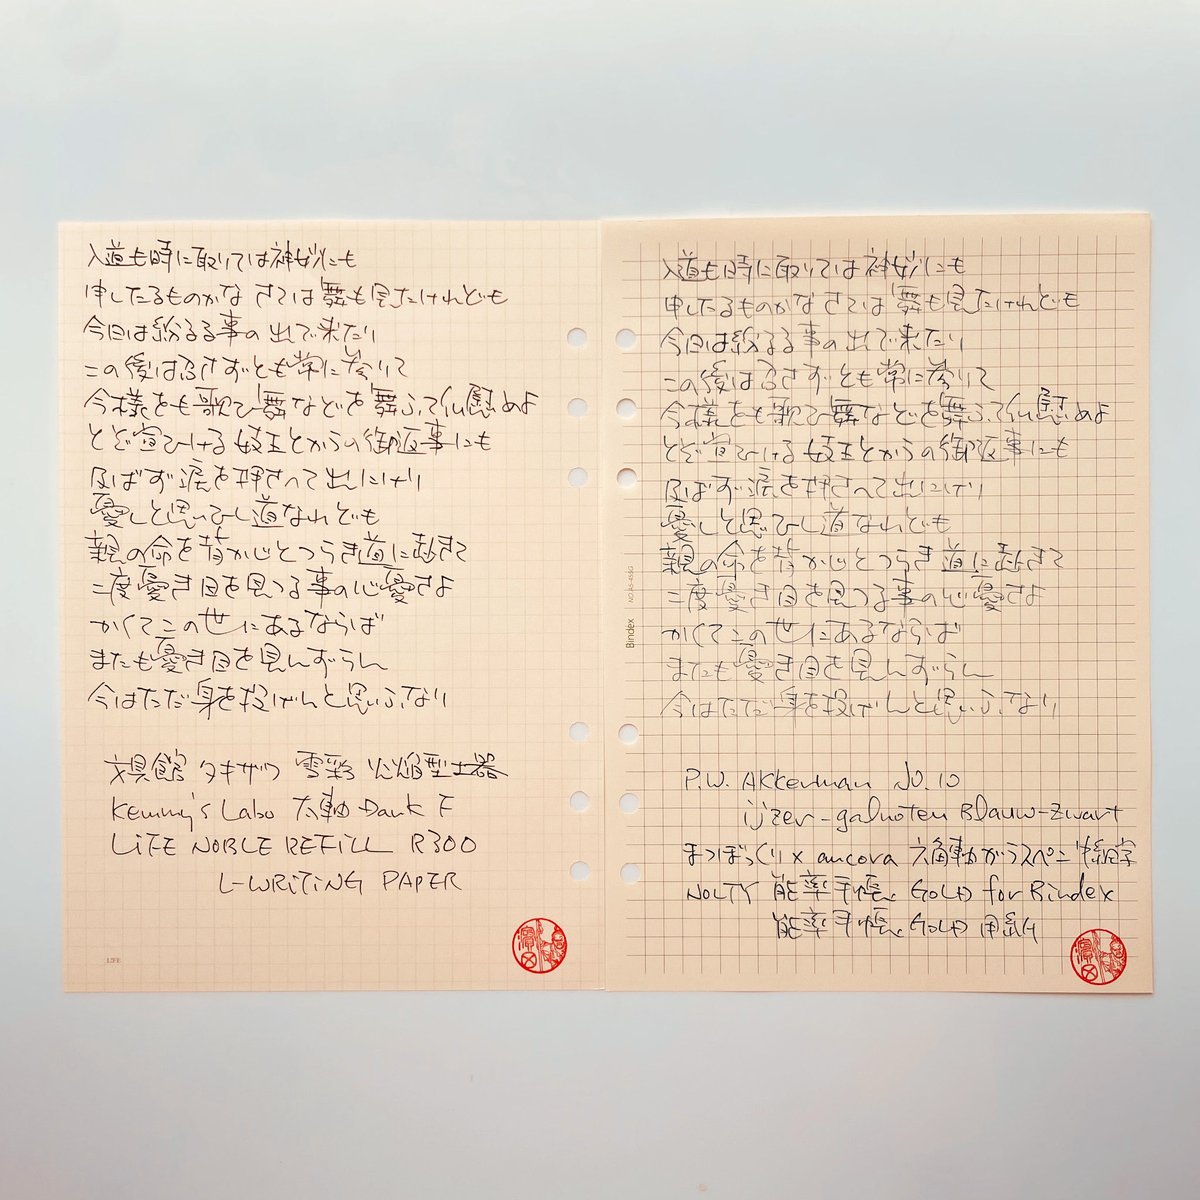 入道も時に取りては神妙にも
申したるものかな さては舞も見たけれども
今日は紛るる事の出で来たり
この後は召さずとも常に参りて
今様をも歌ひ舞などを舞ふて仏慰めよ
とぞ宣ひける 妓王とかうの御返事にも
及ばず 涙を押さへて出にけり
憂しと思ひし道なれども
親の命を背かじとつらき道に赴きて
二度憂き目を見つる事の心憂さよ
かくてこの世にあるならば
またも憂き目を見んずらん
今はただ身を投げんと思ふなり
文具館 タキザワ 雪彩 火焔型土器
Kemmy's Labo 太軸 Dark F
LiFE NOBLE REFILL R300
L-WRiTiNG PAPER
LIFE
濱田
入道も時に取りては神妙にも
申したるものかな さては舞も見たけれども
今日は紛るる事の出で来たり
この後は召さずとも常に参りて
今様をも歌ひ舞などを舞ふて仏慰めよ
とぞ宣ひける 妓王とかうの御返事にも
及ばず 涙を押さへて出にけり
憂しと思ひし道なれども
親の命を背かじとつらき道に赴きて
二度憂き目を見つる事の心憂さよ
かくてこの世にあるならば
またも憂き目を見んずらん
今はただ身を投げんと思ふなり
P.W. Akkerman No.10
ijzer-galnoten Blauw-Zwart
まつぼっくり×ancora 六角軸ガラスペン 中細字
NOLTY 能率手帳 GOLD for Bindex
能率手帳 GOLD 用紙
Bindex
濱田